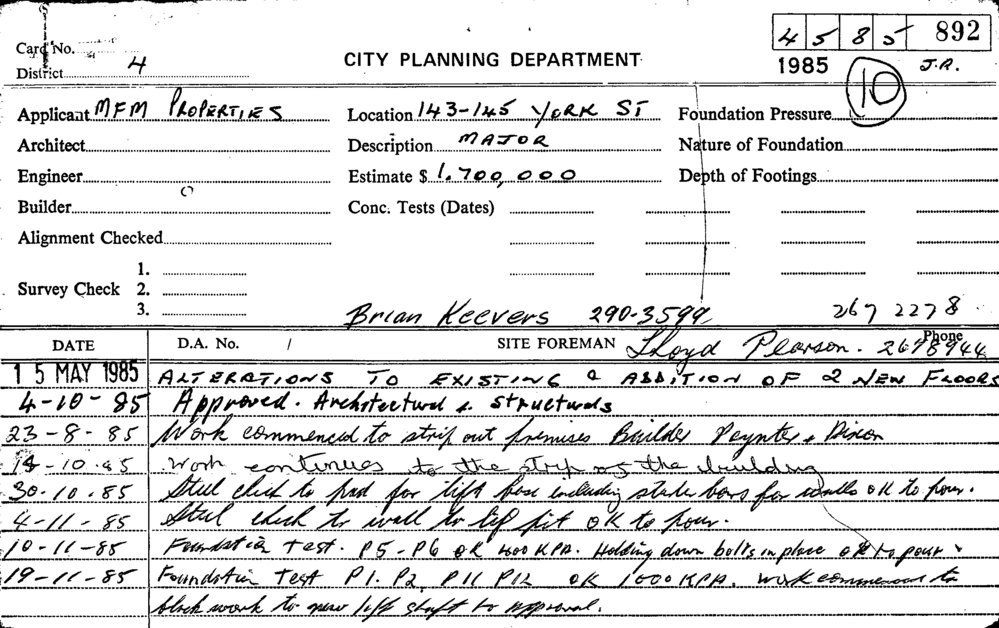 4 5 8 5 892
Card No.
CITY PLANNING DEPARTMENT
1985 J.R.
District 4
10
Applicant MFM PROPERTIES Location 143-145 YORK ST Foundation Pressure
Architect Description MAJOR Nature of Foundation
Engineer Estimate $ 1,700,000 Depth of Footings
Builder Conc. Tests (Dates)
Alignment Checked
1.
Survey Check 2.
3.
Brian Keevers 290-3599 267 2278
DATE D.A. No. / SITE FOREMAN Lloyd Pearson. Phone 2678944
15 MAY 1985 ALTERATIONS TO EXISTING & ADDITION OF 2 NEW FLOORS
4-10-85 Approved. Architectural & structurals
23-8-85 Work commenced to strip out premises Builder Peynter & Dixon
-10-85 Work continues to the strip of the building
30-10-85 Steel check to pad for lift base including starter bars for walls OK to pour.
4-11-85 Steel check to wall to lift pit OK to pour.
10-11-85 Foundation test. P5-P6 OK KPA. Holding down bolts in place OK to pour
19-11-85 Foundation Test P1. P2, P11 P12 OK 1000 KPA. Work commenced to
block work to new lift shaft to approval.